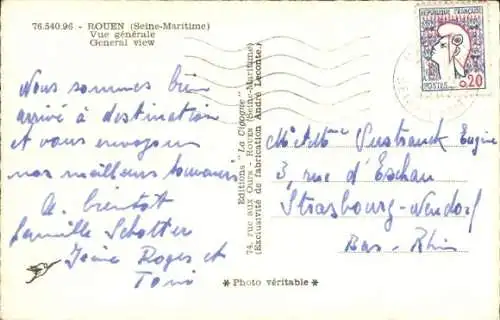 76.540.96 - ROUEN (Seine-Maritime)
Vue générale
General view
Nous sommes bien
arrivé à destination
et vous envoyons
nos meilleurs souvenirs
A. bientôt
famille Schotter
Roger et
Toni
Editions "La Cigogne"
74, rue aux Ours - ROUEN (Seine-Maritime)
(Exclusivité de fabrication André Leconte.)
* Photo véritable *
REPUBLIQUE FRANÇAISE
POSTES
0,20
Eugène
3, rue d'Eschau
Strasbourg-Neudorf
Bas-Rhin